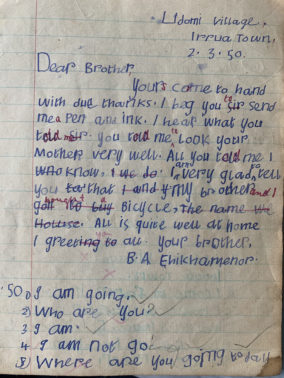 Udomi village,
Irrua Town,
2. 3. 50.
Dear Brother,
Yours came to hand
with due thanks. I beg you to sir send
me a pen and ink. I hear what you
told me sir. you told me to look your
Mother very well. All you told me I
who know. I we do. I and very glad, tell
you to that I and y my brother and I
bought a got to buy Bicycle, the name
House. All is quite well at home
I greeting to all. your brother,
B. A. Ehikhamenor.
'50. 1) I am going.
2) Who are you?
3 I am.
4 I am not go
5) Where are you going today